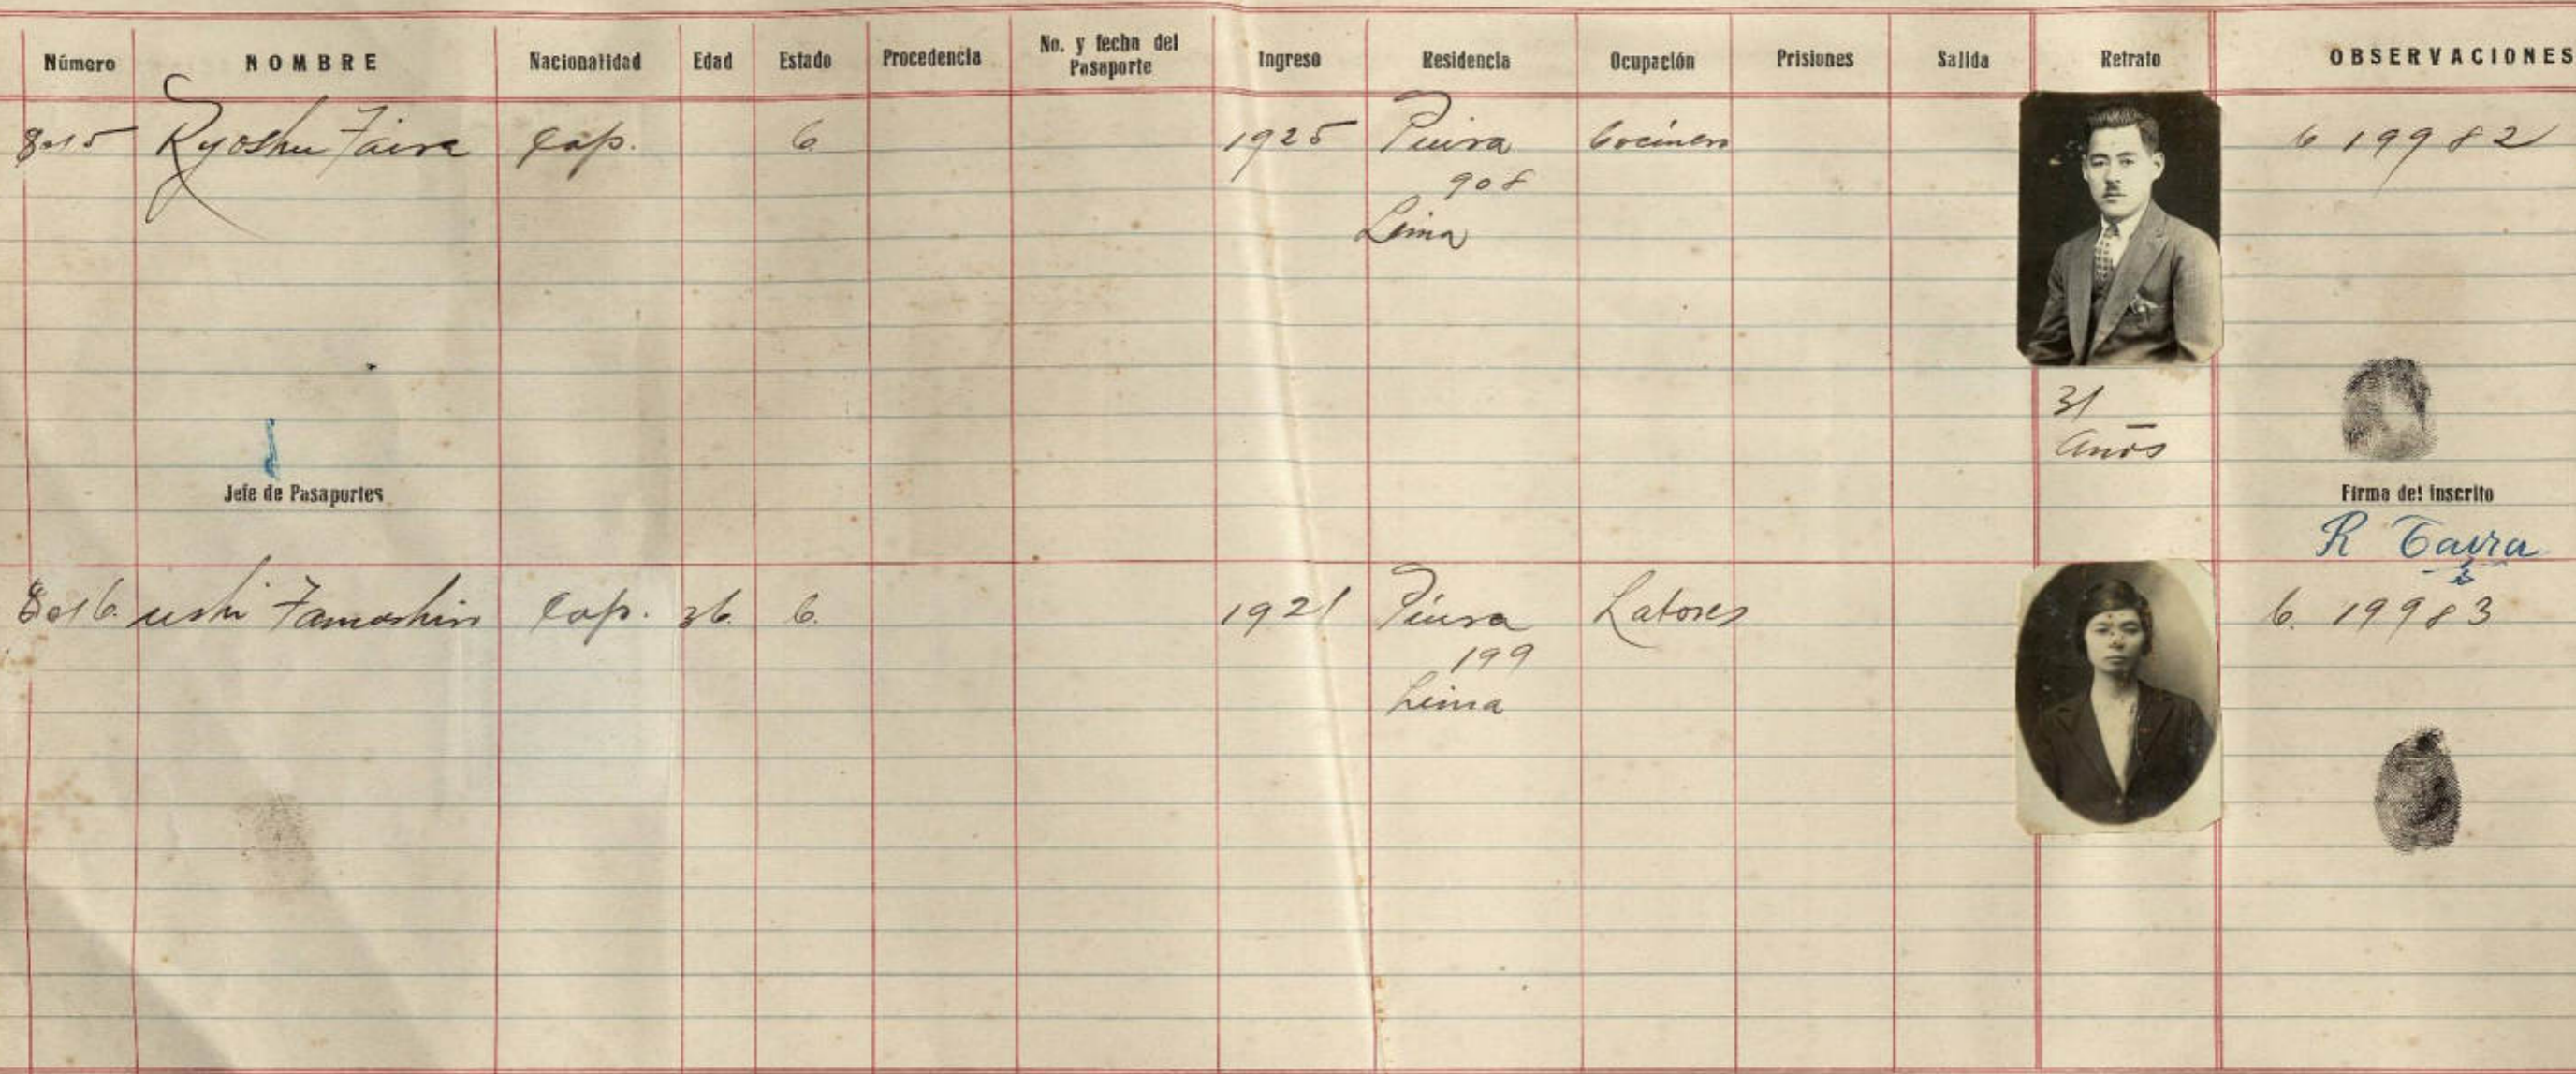 Número NOMBRE Nacionalidad Edad Estado Procedencia No. y fecha del Pasaporte Ingreso Residencia Ocupación Prisiones Salida Retrato OBSERVACIONES
8015 Ryoshu Taira Jap. C. 1925 Piura Cocinero C 19982
908
Lima
31
años
Jefe de Pasaportes Firma del inscrito
R Taira
8016. Ushi Tamashiro Jap. 36. C. 1921 Piura Labores C. 19983
199
Lima